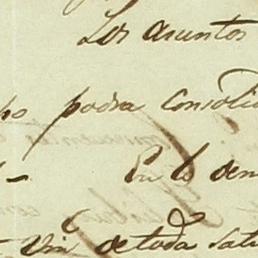 Los asuntos
po podra consolid
En lo dem
de toda sat